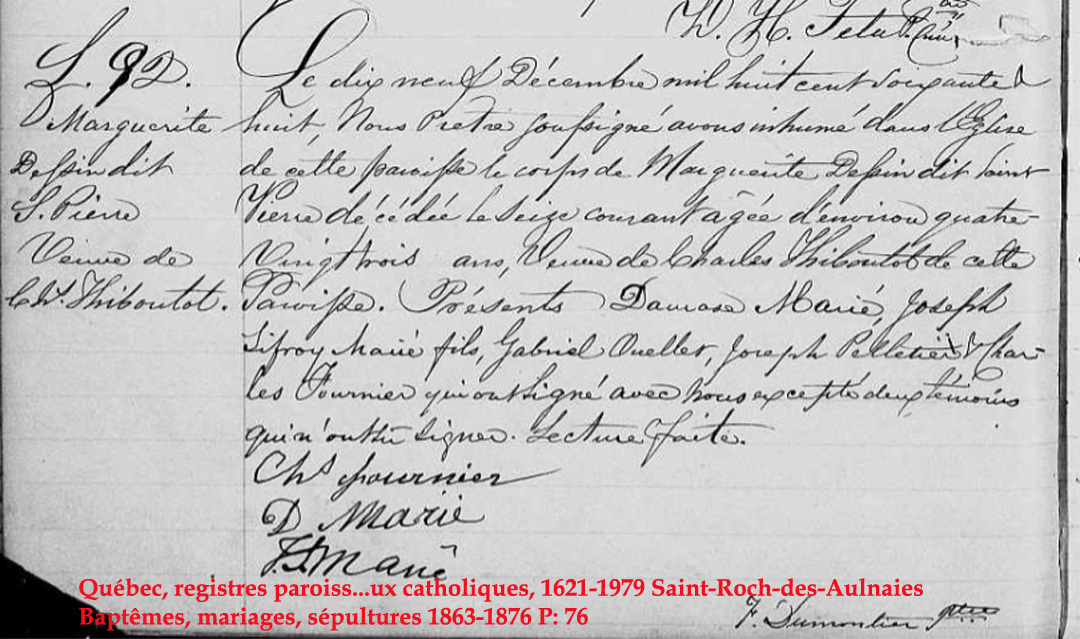 D. H. Tetu Ptre Curé
S. 92.
Marguerite
Dessin dit
S. Pierre
Veuve de
Chs. Thiboutot.
Le dix neuf Décembre mil huit cent soixante &
huit Nous Prêtre soussigné avons inhumé dans l'Eglise
de cette paroisse le corps de Marguerite Dessin dit Saint
Pierre décédée le seize courant âgée d'environ quatre-
vingt trois ans, Veuve de Charles Thiboutot de cette
Paroisse. Présents Damase Marié, Joseph
Lifroy Marié fils, Gabriel Ouellet, Joseph Pelletier & Char-
les Fournier qui ont signé avec nous excepté deux témoins
qui n'ont su signer. Lecture faite.
Chs fournier
D Marié
J. L. Marié
F. Dumontier Ptre
Québec, registres paroiss...ux catholiques, 1621-1979 Saint-Roch-des-Aulnaies
Baptêmes, mariages, sépultures 1863-1876 P: 76